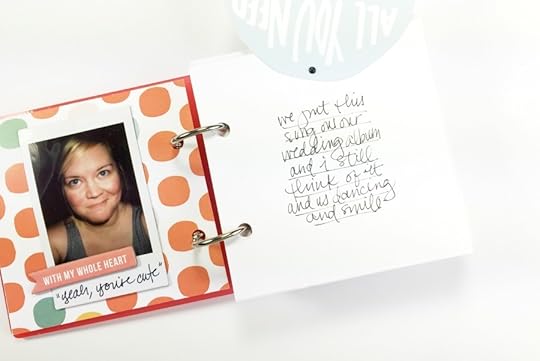 ALL YOU NEED
WITH MY WHOLE HEART
"yeah, you're cute"
we put this
song on our
wedding album
and i still
think of it
and us dancing
and smile